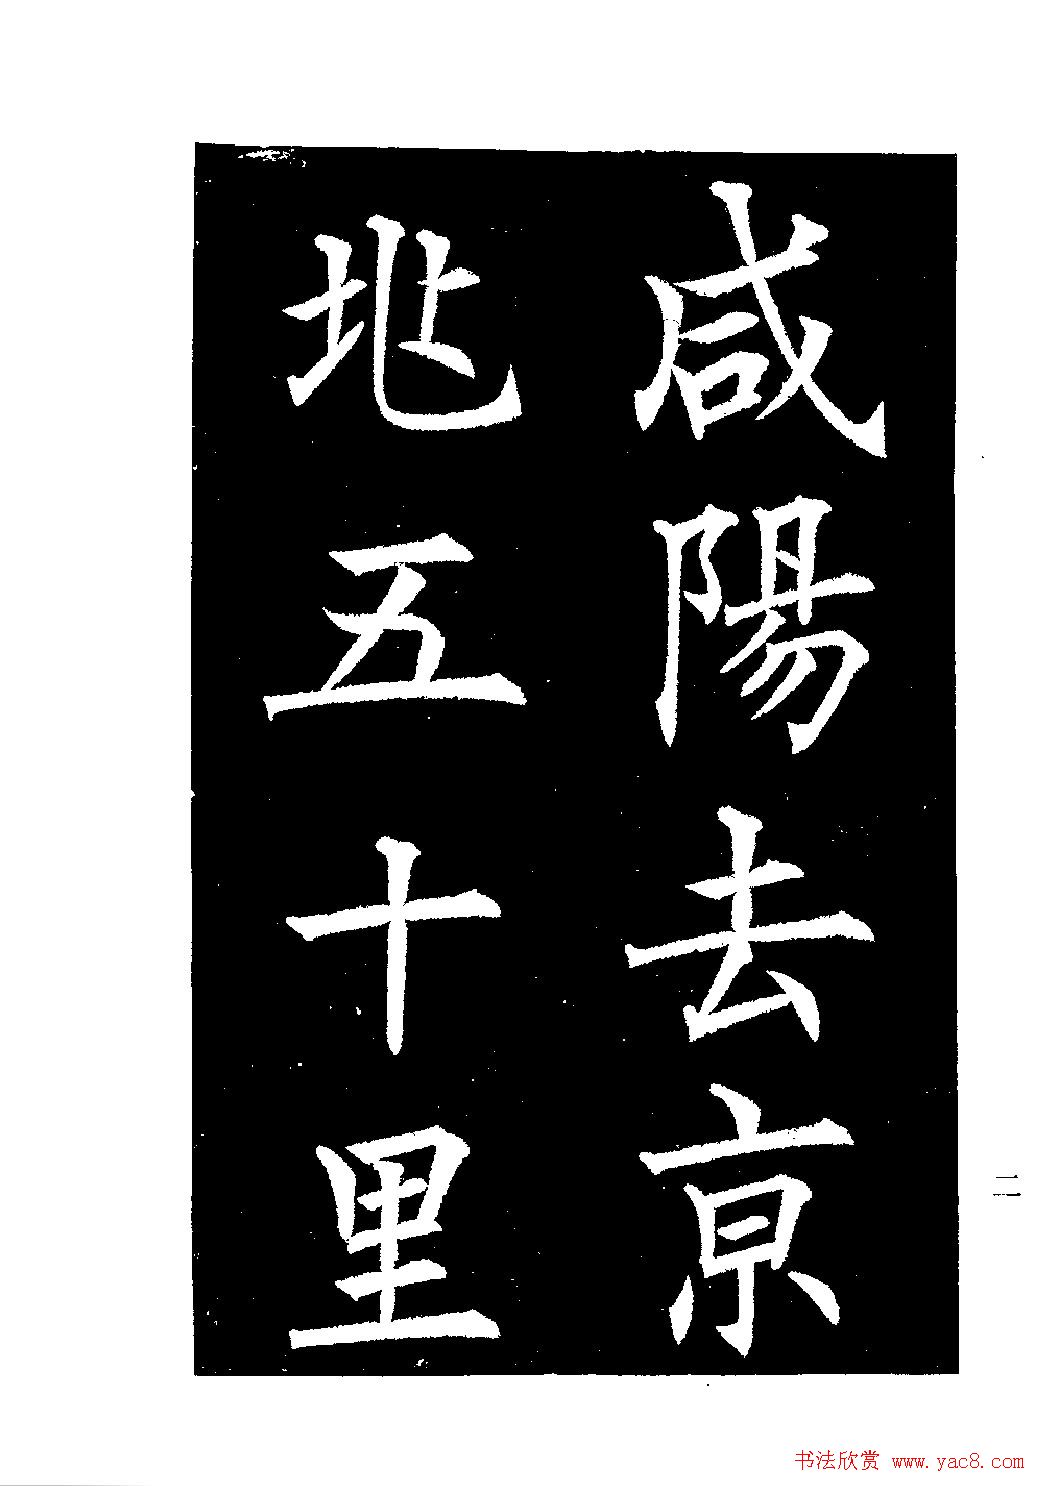 咸陽去亰
兆五十里
二
书法欣赏 www.yac8.com